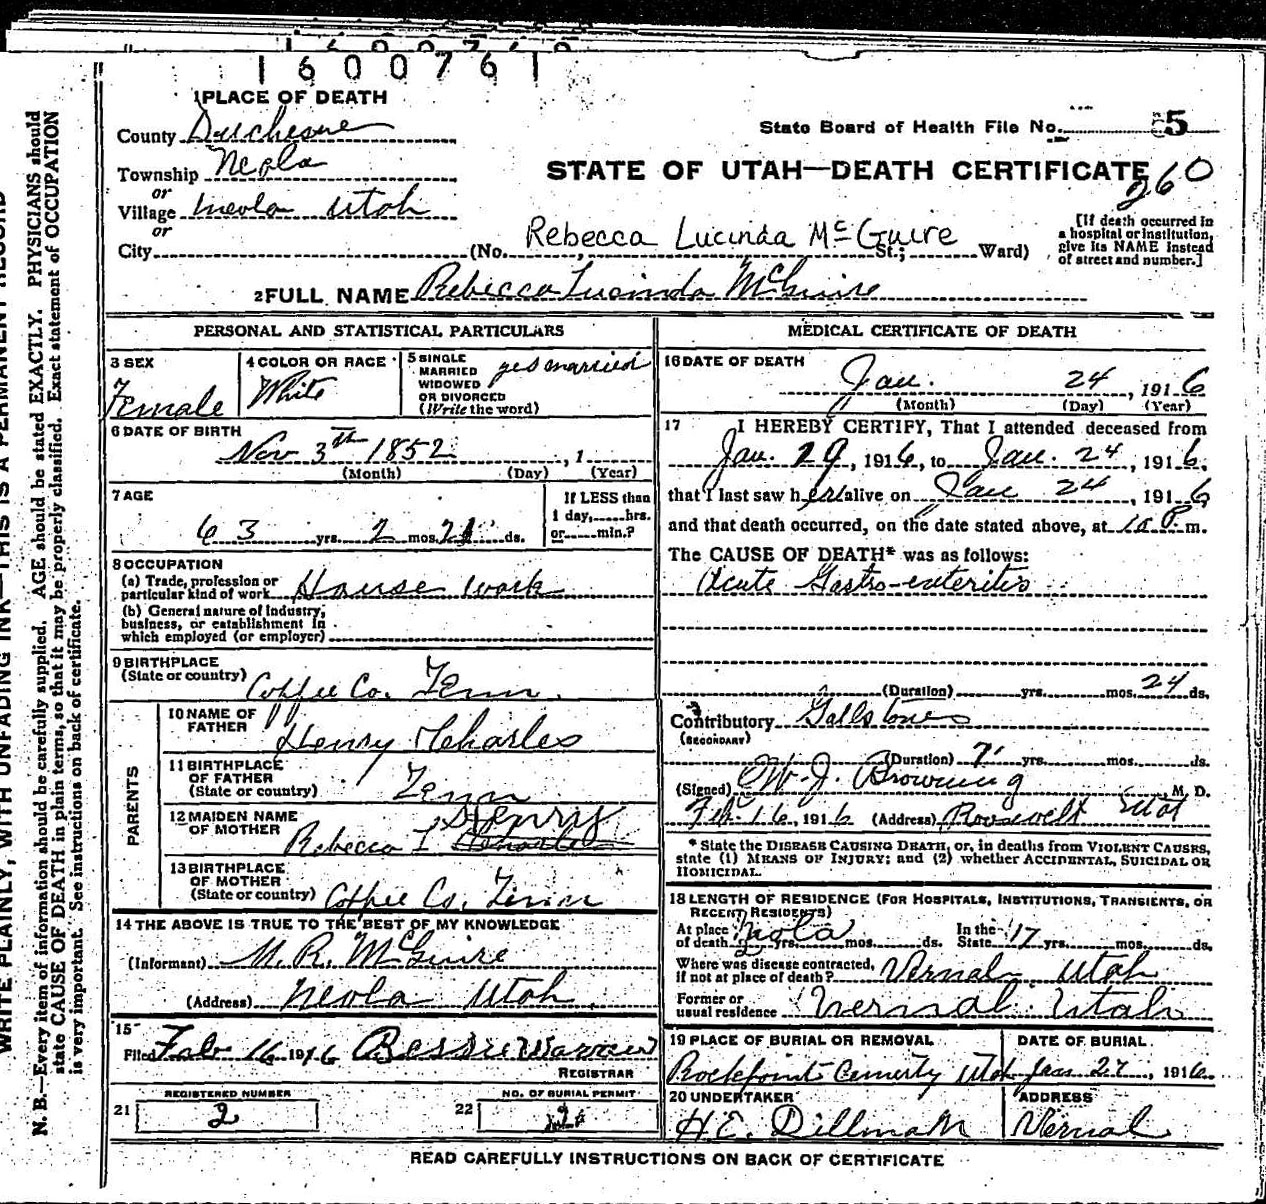 1600761
1 PLACE OF DEATH
County Duchesne
State Board of Health File No. 5
Township Neola
STATE OF UTAH—DEATH CERTIFICATE
260
or
Village Neola Utah
or
City (No. Rebecca Lucinda McGuire St.; Ward)
[If death occurred in
a hospital or institution,
give its NAME instead
of street and number.]
2 FULL NAME Rebecca Lucinda McGuire
PERSONAL AND STATISTICAL PARTICULARS
3 SEX Female
4 COLOR OR RACE White
5 SINGLE
MARRIED
WIDOWED
OR DIVORCED
(Write the word)
yes married
6 DATE OF BIRTH
Nov 3th 1852, 1
(Month) (Day) (Year)
7 AGE
63 yrs. 2 mos. 21 ds.
If LESS than
1 day,......hrs.
or......min.?
8 OCCUPATION
(a) Trade, profession or
particular kind of work House work
(b) General nature of industry,
business, or establishment in
which employed (or employer)
9 BIRTHPLACE
(State or country) Coffee Co. Tenn.
PARENTS
10 NAME OF
FATHER Henry Mcharles
11 BIRTHPLACE
OF FATHER
(State or country) Tenn
12 MAIDEN NAME
OF MOTHER Rebecca L Henry
13 BIRTHPLACE
OF MOTHER
(State or country) Coffee Co. Tenn
14 THE ABOVE IS TRUE TO THE BEST OF MY KNOWLEDGE
(Informant) M. R. McGuire
(Address) Neola Utah
15
Filed Feb 16 1916 Bessie Warren
REGISTRAR
21 REGISTERED NUMBER 2
22 NO. OF BURIAL PERMIT
MEDICAL CERTIFICATE OF DEATH
16 DATE OF DEATH
Jan. 24, 1916
(Month) (Day) (Year)
17 I HEREBY CERTIFY, That I attended deceased from
Jan. 29, 1916, to Jan. 24, 1916,
that I last saw her alive on Jan 24, 1916
and that death occurred, on the date stated above, at P m.
The CAUSE OF DEATH* was as follows:
Acute Gastro-enteritis
(Duration) yrs. mos. 24 ds.
Contributory Gallstones
(SECONDARY)
(Duration) 7 yrs. mos. ds.
(Signed) W. J. Browning M. D.
Feb. 16, 1916 (Address) Roosevelt Utah
* State the DISEASE CAUSING DEATH, or, in deaths from VIOLENT CAUSES,
state (1) MEANS OF INJURY; and (2) whether ACCIDENTAL, SUICIDAL OR
HOMICIDAL.
18 LENGTH OF RESIDENCE (FOR HOSPITALS, INSTITUTIONS, TRANSIENTS, OR
RECENT RESIDENTS)
At place
of death 2 yrs. mos. ds. Neola
In the
State 17 yrs. mos. ds.
Where was disease contracted,
if not at place of death? Vernal Utah
Former or
usual residence Vernal Utah
19 PLACE OF BURIAL OR REMOVAL
Rockpoint Cemerty Utah
DATE OF BURIAL
Jan 27, 1916
20 UNDERTAKER
H E. Dillman
ADDRESS
Vernal
READ CAREFULLY INSTRUCTIONS ON BACK OF CERTIFICATE
WRITE PLAINLY, WITH UNFADING INK—THIS IS A PERMANENT RECORD
N. B.—Every item of information should be carefully supplied. AGE should be stated EXACTLY. PHYSICIANS should
state CAUSE OF DEATH in plain terms, so that it may be properly classified. Exact statement of OCCUPATION
is very important. See instructions on back of certificate.